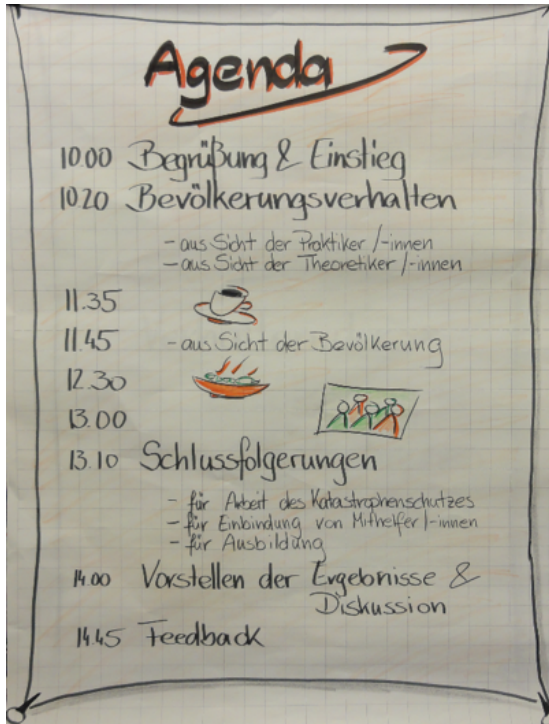 Agenda
10.00 Begrüßung & Einstieg
10.20 Bevölkerungsverhalten
- aus Sicht der Praktiker/-innen
- aus Sicht der Theoretiker/-innen
11.35
11.45 - aus Sicht der Bevölkerung
12.30
13.00
13.10 Schlussfolgerungen
- für Arbeit des Katastrophenschutzes
- für Einbindung von Mithelfer/-innen
- für Ausbildung
14.00 Vorstellen der Ergebnisse &
Diskussion
14.45 Feedback